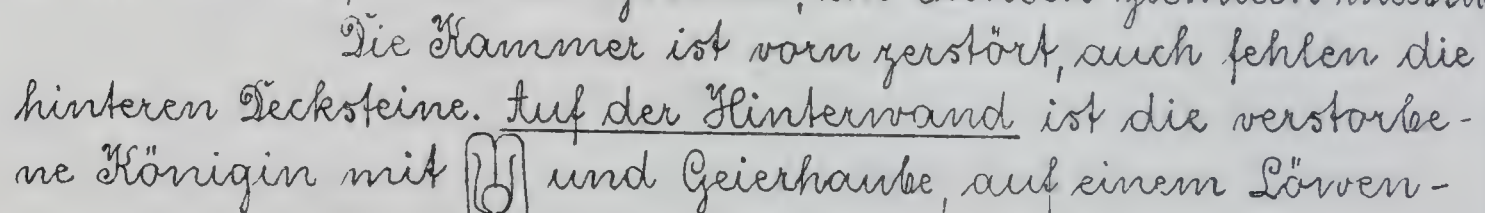 Die Kammer ist vorn zerstört, auch fehlen die
hinteren Decksteine. Auf der Hinterwand ist die verstorbe-
ne Königin mit und Geierhaube, auf einem Löwen-